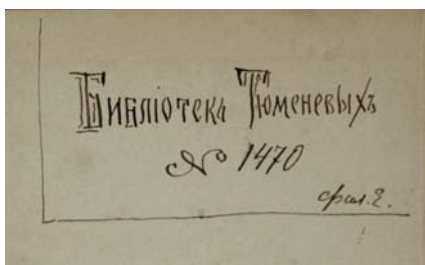 Библіотека Тюменевыхъ
№ 1470